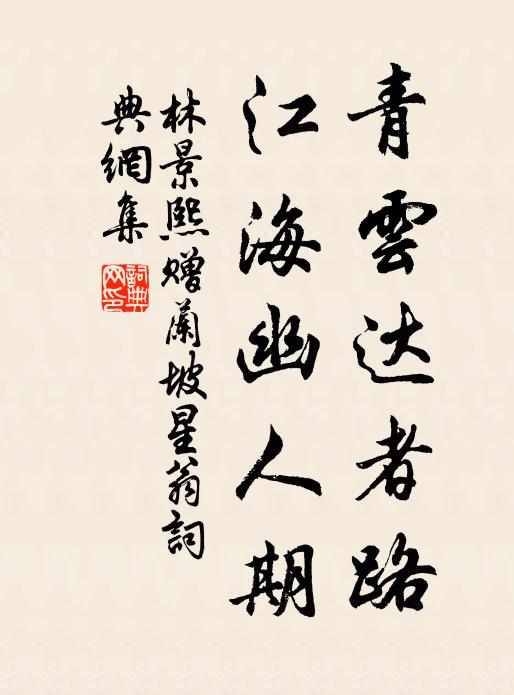 青雲达者路
江海幽人期
林景熙赠蘭坡星翁詞
典網集
詞典
网印